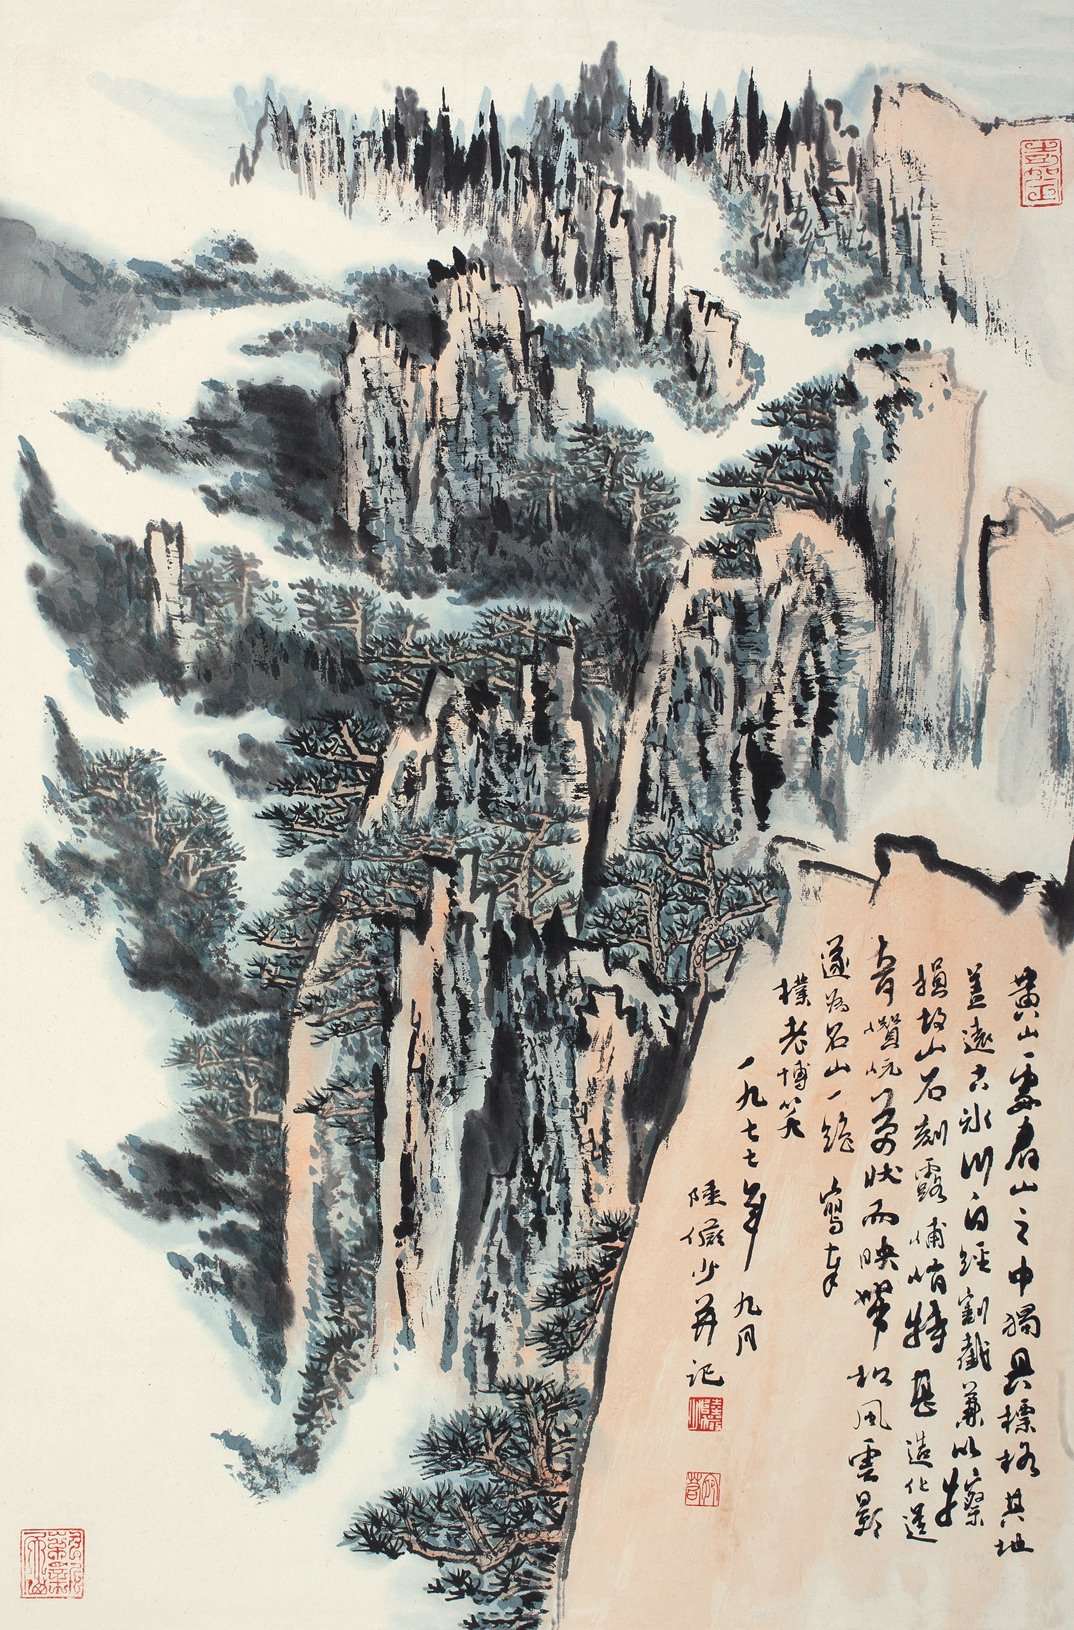 黄山處群山之中獨具標格其地
蓋遠古冰川自經割截兼以擦
損故山石刻露峬峭特甚造化逞
奇巑岏萬狀而映帶松風雲影
遂為名山一絕 寫奉
樸老博笑
一九七七年九月
陸儼少并記
宛若